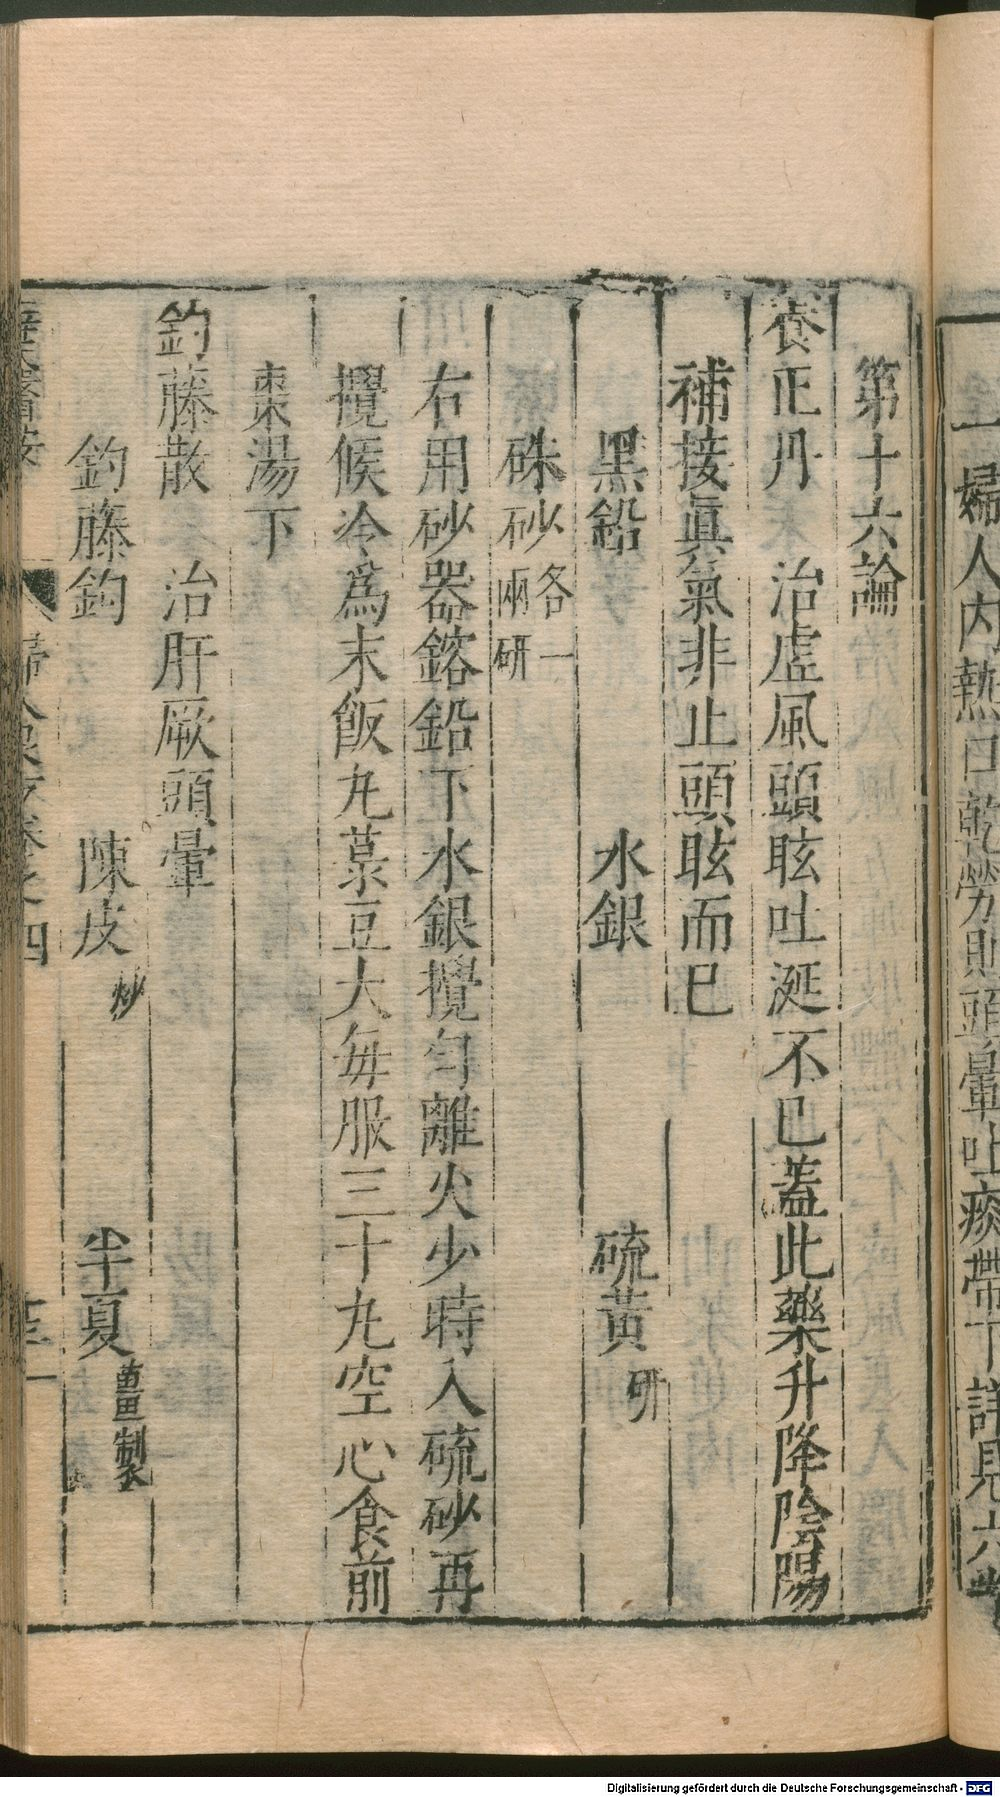 一婦人内熱口乾勞則頭暈吐痰帶下詳見六
第十六論
養正丹　治虛風頭眩吐涎不已蓋此藥升降陰陽
補接眞氣非止頭眩而已
黑鉛　水銀　硫黃研
硃砂各一兩研
右用砂器鎔鉛下水銀攪勻離火少時入硫砂再
攪候冷爲末飯丸菉豆大每服三十丸空心食前
棗湯下
鈎藤散　治肝厥頭暈
鈎藤鈎　陳皮炒　半夏薑製
婦人良方卷之四
Digitalisierung gefördert durch die Deutsche Forschungsgemeinschaft - DFG